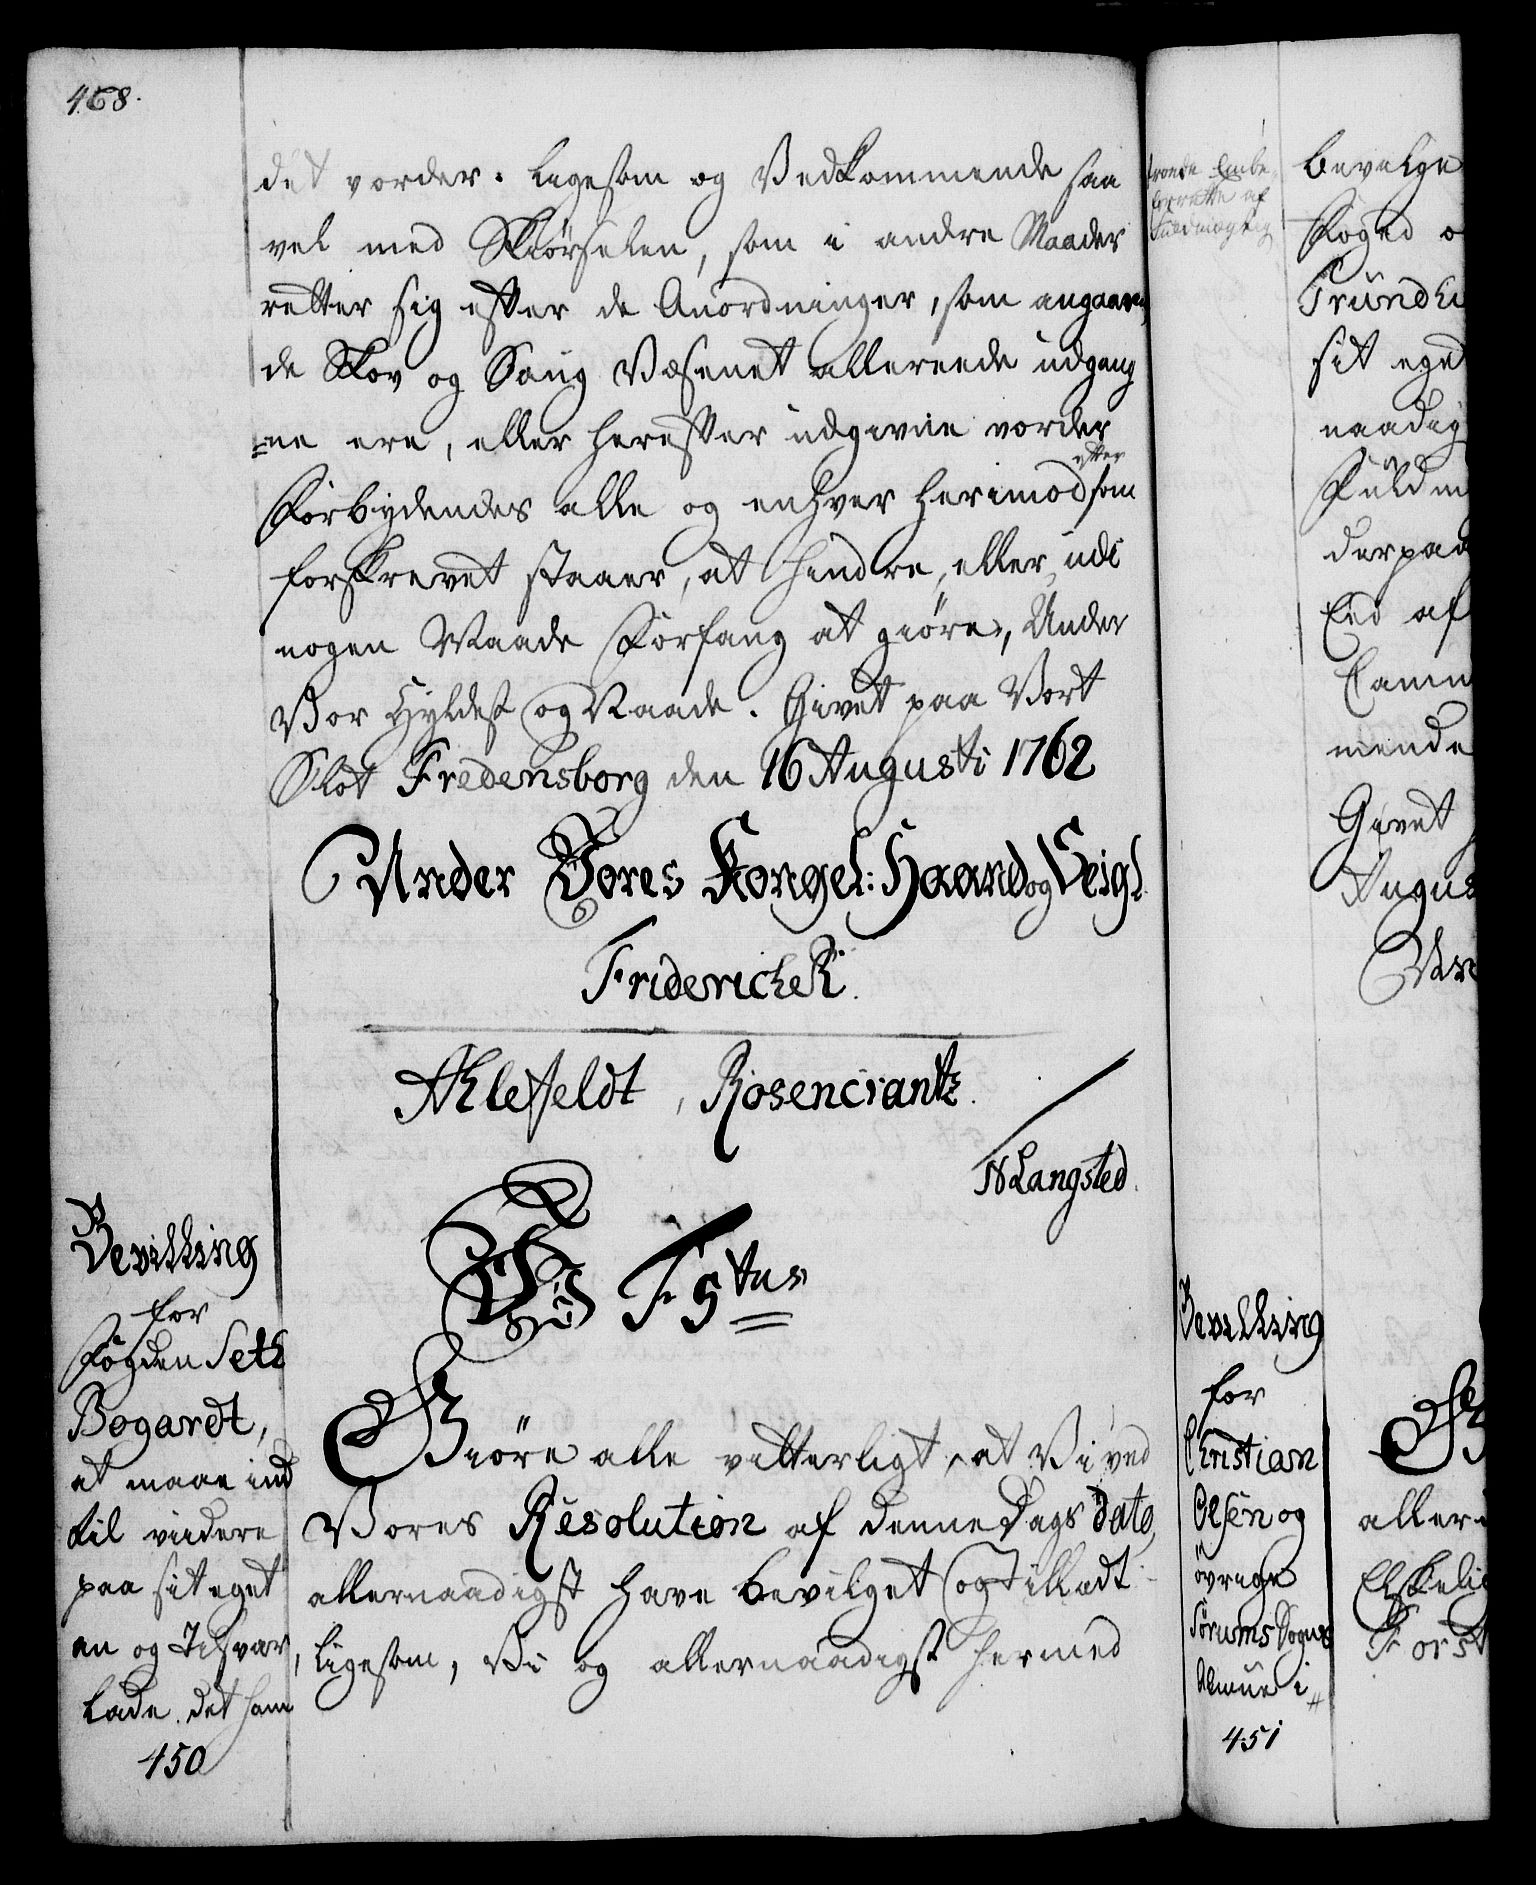 468.
det vorder. Ligesom og Vedkommende saa
vel med Skiørselen, som i andre Maader
retter sig efter de Anordninger, som angaaen
de Skov og Saug Væsenet allereede udgang
ne ere, eller herefter udgivne vorder
Forbydendes alle og enhver herimod efter som
forskrevet staaer, at hindre, eller udi
nogen Maade Forfang at giøre, Under
Vor Hyldest og Naade. Givet paa Vort
Slot Fredensborg den 16 Augusti 1762
Under Vores Kongel: Haand og Seigl.
Friderich R.
Ahlefeldt, Rosencrantz.
N Langsted.
Bevilling
for
Fogden Seth
Bogardt,
at maae ind
til viidere
paa sit eget
an og Tilsvar,
lade det ham
450
Vi F 5tus
Giøre alle vitterligt, at Vi ved
Vores Resolution af denne Dags dato,
allernaadigst have bevilget og Tilladt
ligesom, Vi og allernaadigst hermed
troede Embe-
forrette af
Fuldmægtig
Bevilling
for
Christian
Olsen og
øvrige
Sørums Sogns
Almue i
451
bevilge
Foged o
Trundhi
sit eget
naadig
Fuldm
derpaa
Eed af
Camm
mende
Givet
Augus
Un
G
aller
Elskelig
Forst